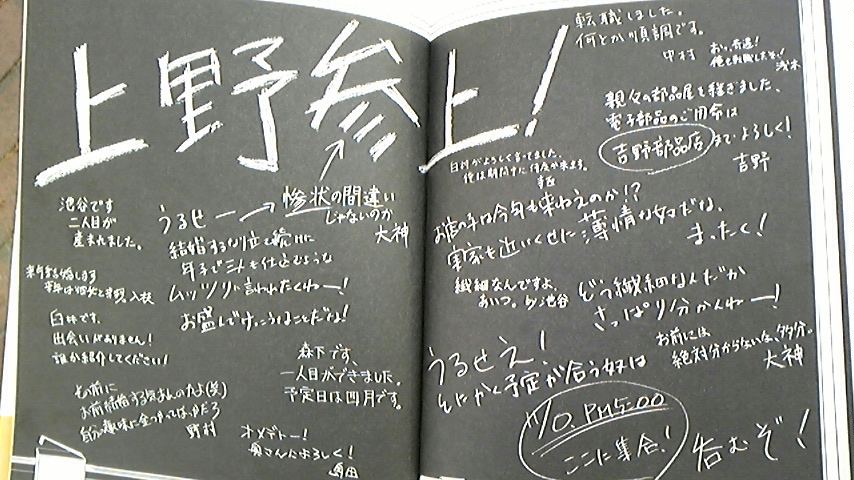 上野参上!
池谷です
二人目が
産まれました。
うるせー
惨状の間違い
じゃないのか
大神
結婚するなり立て続けに
年子で三人も仕込むような
ムッツリに言われたくねー!
お盛んでけっこうなことだな!
臼井です。
出会いがありません!
誰か紹介してください!
その前に
お前結婚する気あんのかよ(笑)
野村
森下です、
一人目ができました。
予定日は四月です。
オメデトー!
奥さんによろしく!
転職しました。
何とか順調です。
中村
おっ、奇遇!
俺も転職したぞ!
浅木
親父の部品屋を継ぎました、
電子部品のご用命は
吉野部品店 まで よろしく!
吉野
臼井がよろしく言ってました。
俺は期間中に何度か来ます。
お店の子は今年も来ねえのか!?
実家も近いくせに薄情な奴だな、
まったく!
繊細なんですよ、
あいつ。 池谷
どう繊細なんだか
さっぱり分かんねー!
お前には
絶対分からないな、多分。
大神
うるせえ!
とにかく予定が合う奴は
PM5:00
ここに集合!
呑むぞ!